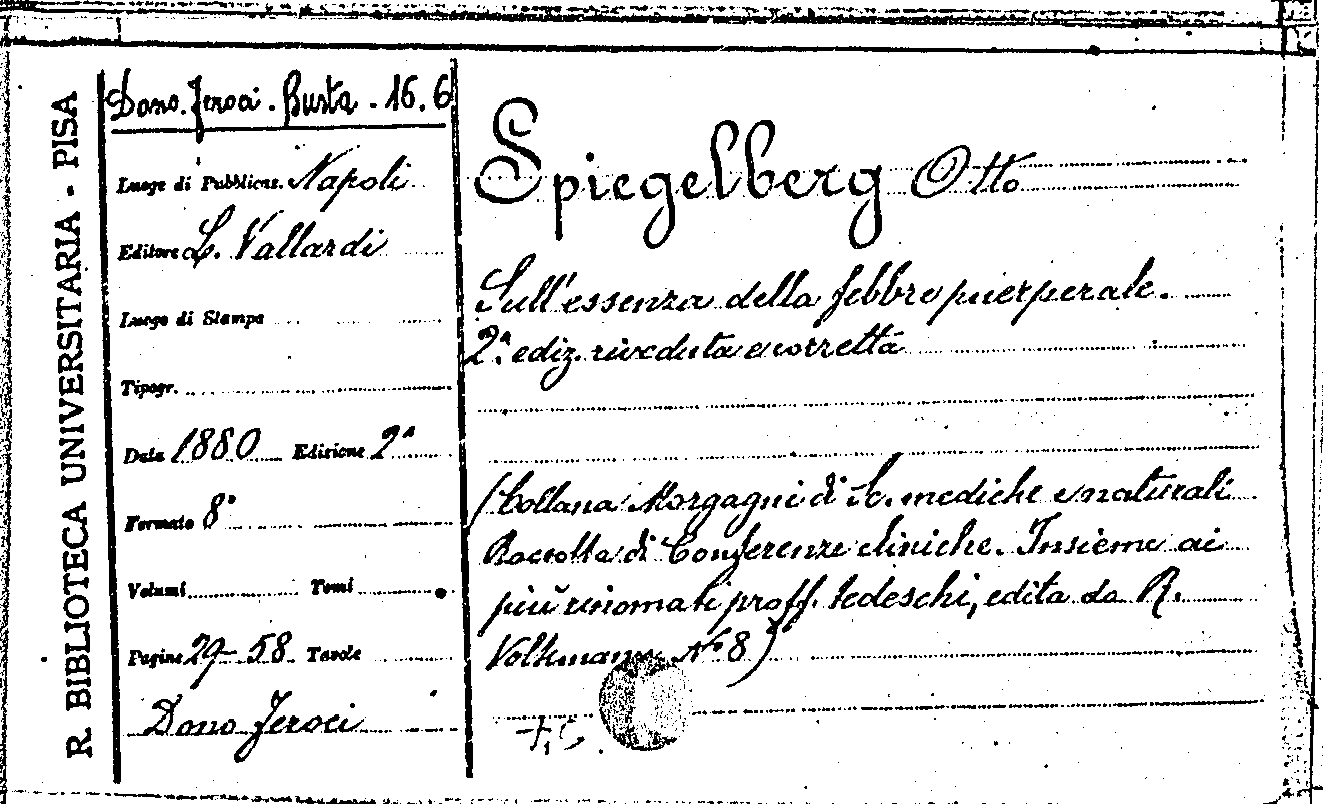 R. BIBLIOTECA UNIVERSITARIA - PISA
Dono. Feroci. Busta. 16.6
Luogo di Pubblicaz. Napoli
Editore L. Vallardi
Luogo di Stampa
Tipogr.
Data 1880 Edizione 2ª
Formato 8°
Volumi Tomi
Pagine 29-58 Tavole
Dono Feroci
Spiegelberg Otto
Sull'essenza della febbre puerperale.
2ª ediz. riveduta e corretta
(Collana Morgagni di Sc. mediche e naturali
Raccolta di Conferenze cliniche. Insieme ai
più rinomati proff. tedeschi, edita da R.
Volkmann N° 8)